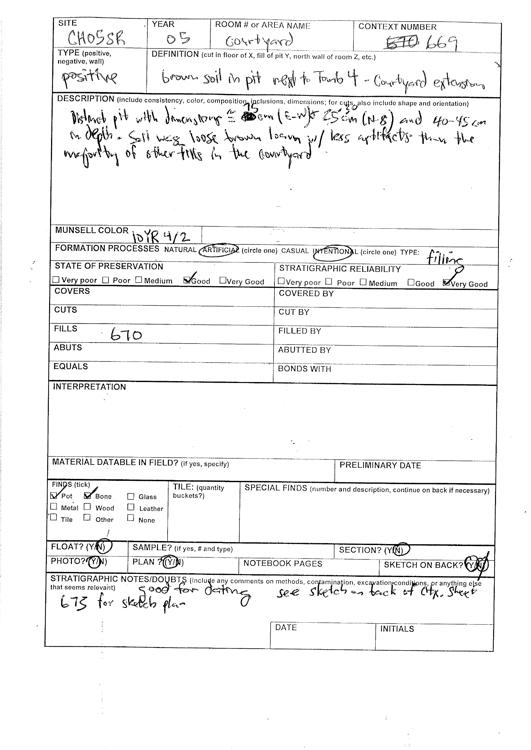 SITE YEAR ROOM # or AREA NAME CONTEXT NUMBER
CH05SR 05 Courtyard 670 669
TYPE (positive, negative, wall) DEFINITION (cut in floor of X, fill of pit Y, north wall of room Z, etc.)
positive brown soil in pit next to Tomb 4 - Courtyard extension
DESCRIPTION (include consistency, color, composition, inclusions, dimensions; for cuts, also include shape and orientation)
Distinct pit with dimensions ≅ 75 cm (E-W) 25 cm (N-S) and 40-45 cm
in depth. Soil was loose brown loam w/ less artifacts than the
majority of other fills in the courtyard
MUNSELL COLOR 10YR 4/2
FORMATION PROCESSES NATURAL ARTIFICIAL (circle one) CASUAL INTENTIONAL (circle one) TYPE:
STATE OF PRESERVATION STRATIGRAPHIC RELIABILITY
Very poor Poor Medium Good Very Good Very poor Poor Medium Good Very Good
COVERS COVERED BY
CUTS CUT BY
FILLS 670 FILLED BY
ABUTS ABUTTED BY
EQUALS BONDS WITH
INTERPRETATION
MATERIAL DATABLE IN FIELD? (if yes, specify) PRELIMINARY DATE
FINDS (tick) TILE: (quantity buckets?) SPECIAL FINDS (number and description, continue on back if necessary)
Pot Bone Glass
Metal Wood Leather
Tile Other None
FLOAT? (Y/N) SAMPLE? (if yes, # and type) SECTION? (Y/N)
PHOTO? (Y/N) PLAN? (Y/N) NOTEBOOK PAGES SKETCH ON BACK? (Y/N)
STRATIGRAPHIC NOTES/DOUBTS (Include any comments on methods, contamination, excavation conditions, or anything else
that seems relevant) good for dating see sketch on back of Ctx. Sheet
675 for sketch plan
DATE INITIALS